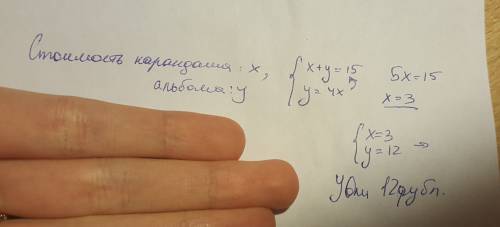 Стоимость карандаша: x,
альбома: y
{ x+y=15
y=4x
5x=15
x=3
{ x=3
y=12 =>
12рубл.